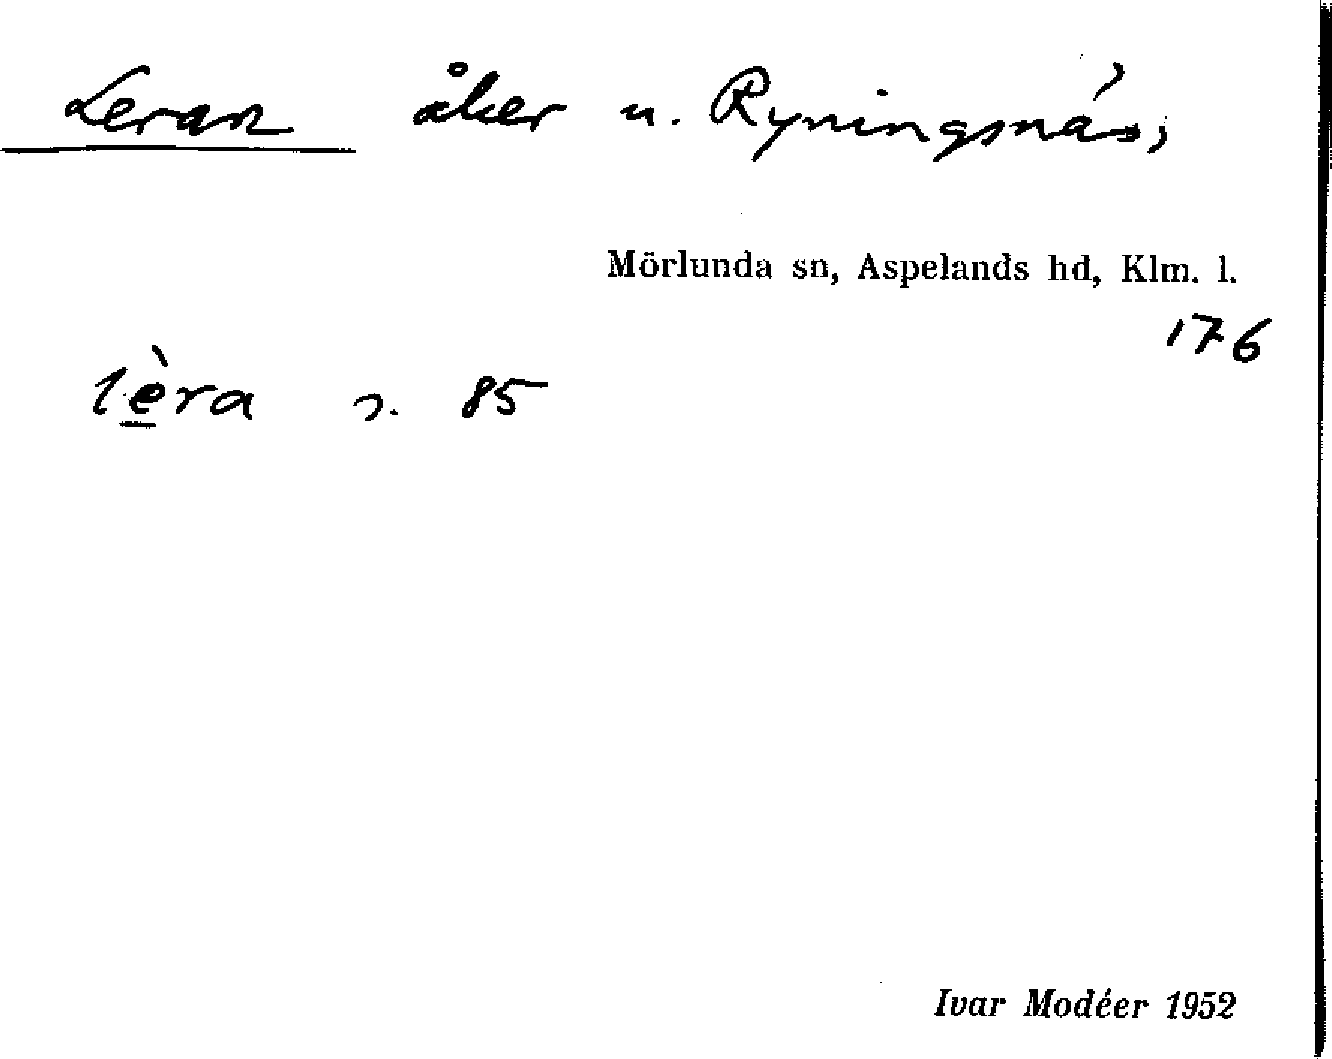 Leran åker u. Ryningsnäs,
Mörlunda sn, Aspelands hd, Klm. l.
176
lèra s. 85
Ivar Modéer 1952